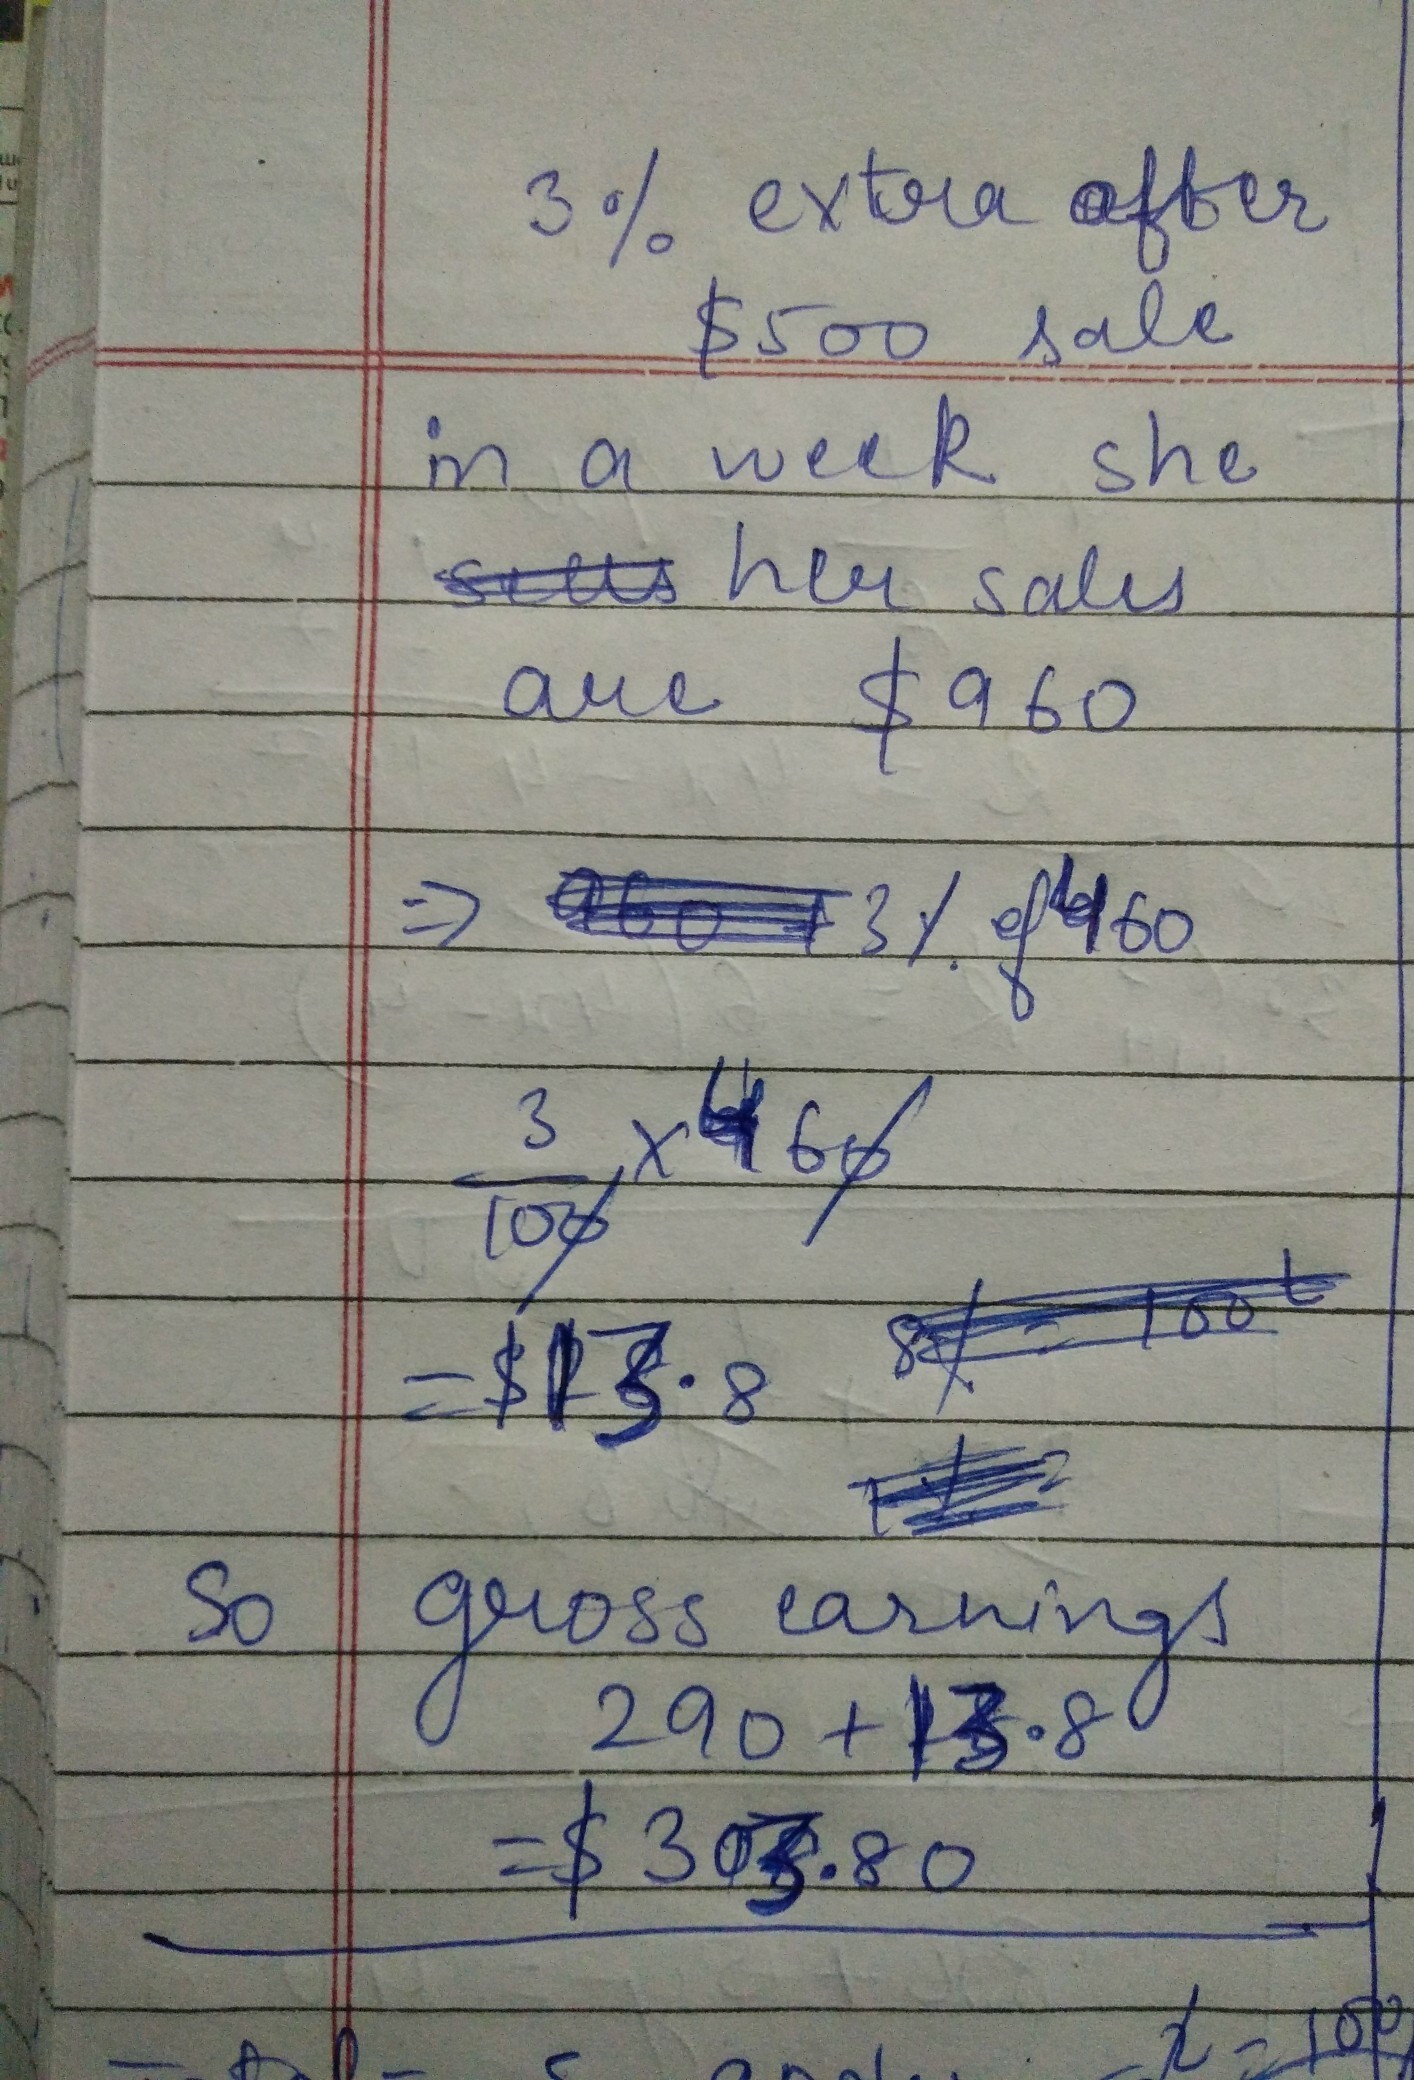 3% extra after
$500 sale
in a week she
her sales
are $960
=> 3% of 460
3/100 × 460
= $13.8
So gross earnings
290 + 13.8
= $303.80